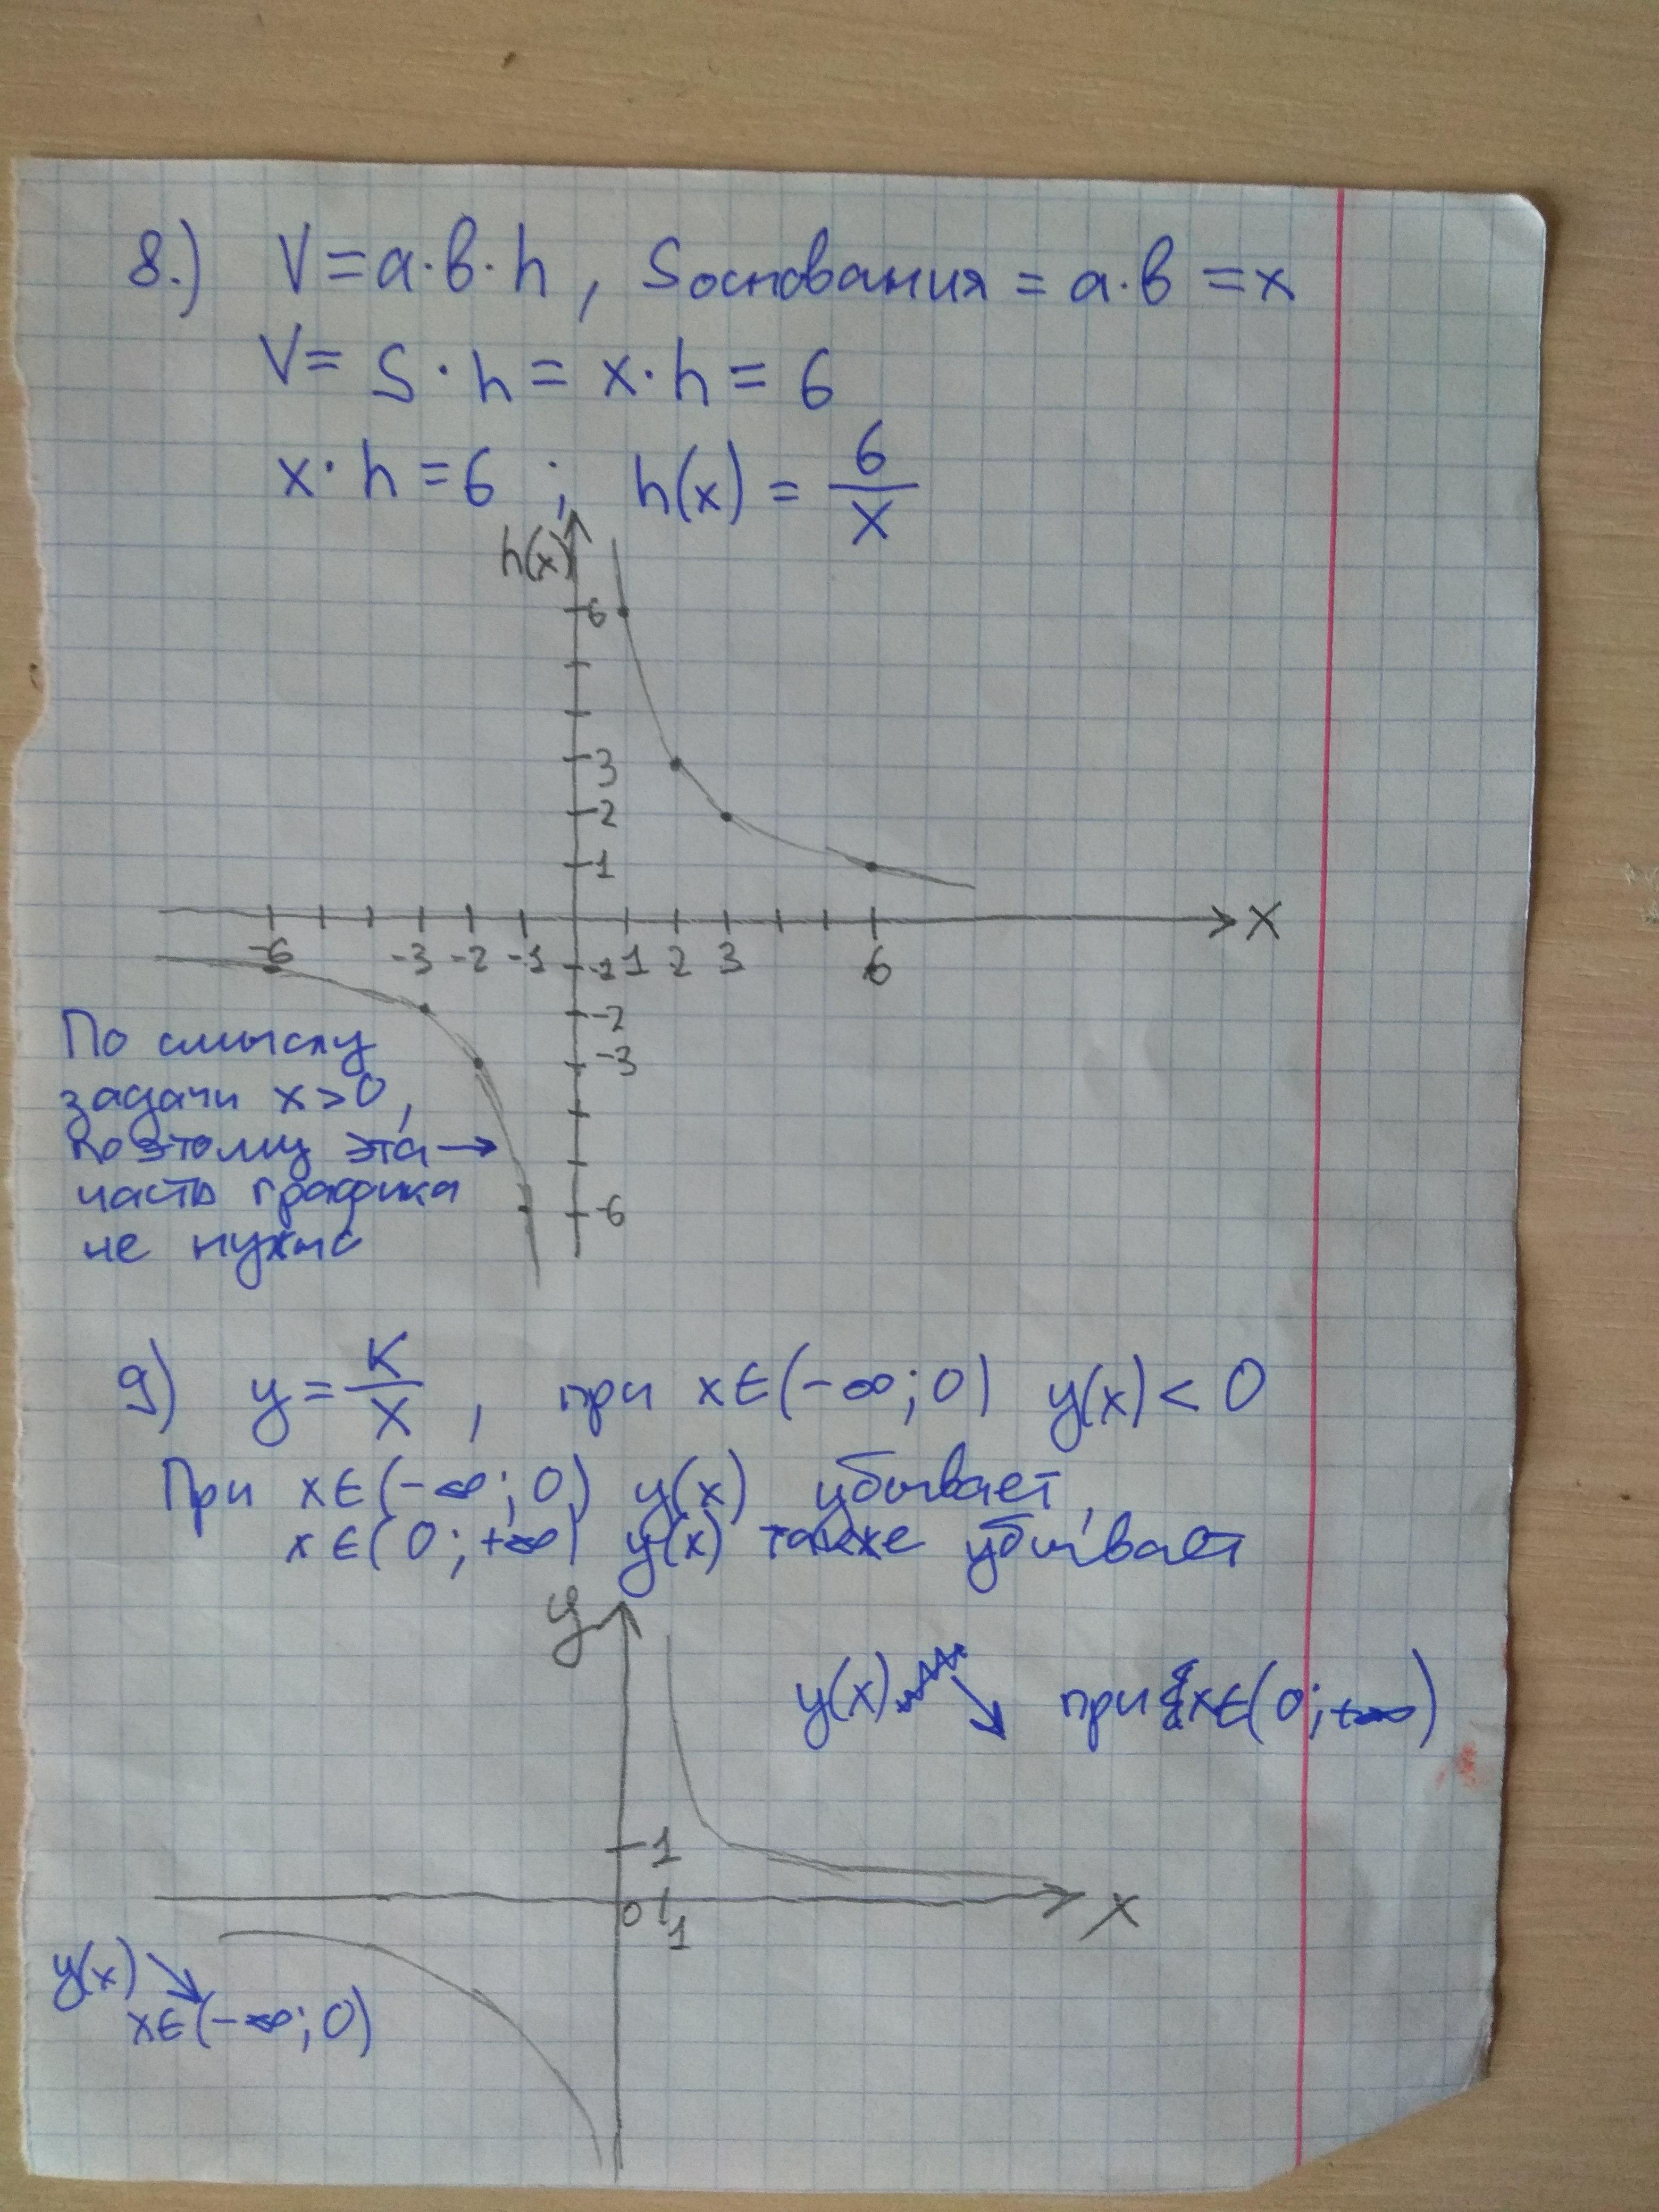 8.) V=a·b·h, Sоснования = a·b = x
V= S·h = x·h = 6
x·h = 6 ; h(x) = 6/x
h(x)
6
3
2
1
-6 -3 -2 -1 -1 1 2 3 6 X
-2
-3
-6
По смыслу
задачи x>0,
поэтому эта →
часть графика
не нужна
9) y = K/X , при x∈(-∞;0) y(x) < 0
При x∈(-∞;0) y(x) убывает,
x∈(0;+∞) y(x) также убывает
y
y(x) ↘ при x∈(0;+∞)
1
0 1 X
y(x) ↘
x∈(-∞;0)